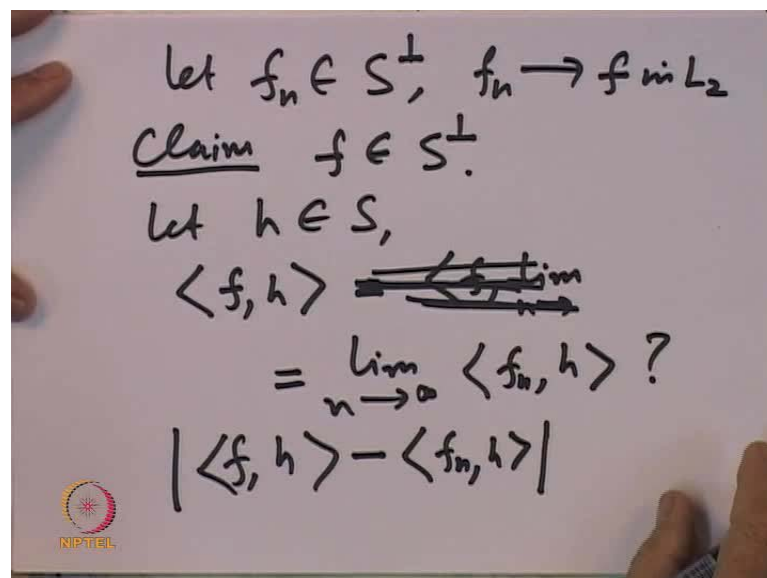 Let fₙ ∈ S^⊥, fₙ → f in L₂
Claim f ∈ S^⊥.
Let h ∈ S,
<f, h> =
= lim n→∞ <fₙ, h> ?
|<f, h> − <fₙ, h>|
NPTEL